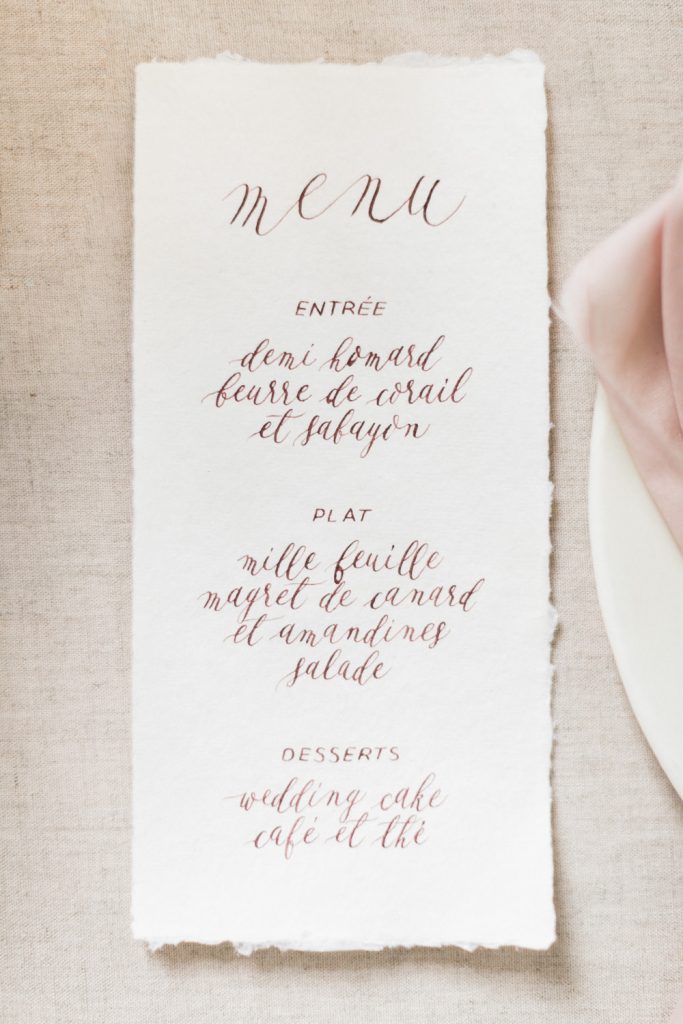 menu
ENTRÉE
demi homard
beurre de corail
et sabayon
PLAT
mille feuille
magret de canard
et amandines
salade
DESSERTS
wedding cake
café et thé